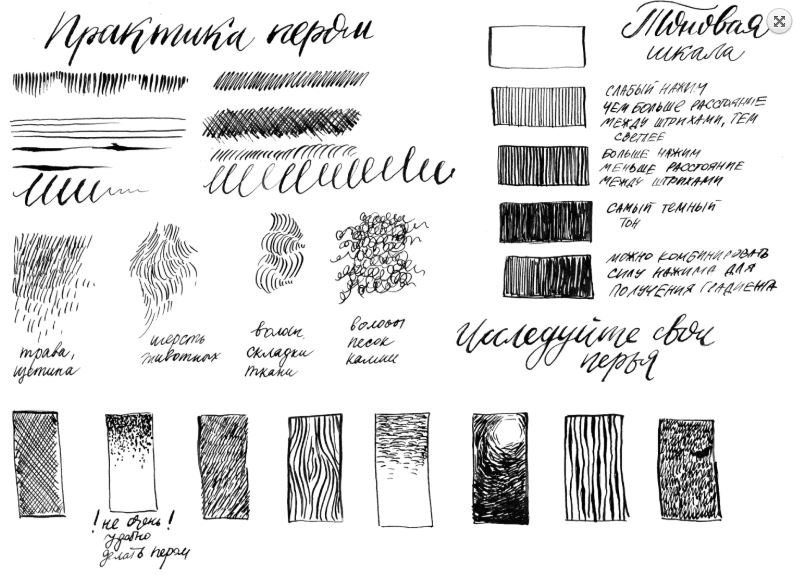 Практика пером
Тоновая
шкала
слабый нажим
чем больше расстояние
между штрихами, тем
светлее
больше нажим
меньше расстояние
между штрихами
самый темный
тон
можно комбинировать
силу нажима для
получения градиента
трава,
щетина
шерсть
животных
волосы,
складки
ткани
волосы
песок
камни
Исследуйте свои
перья
! не очень !
удобно
делать пером